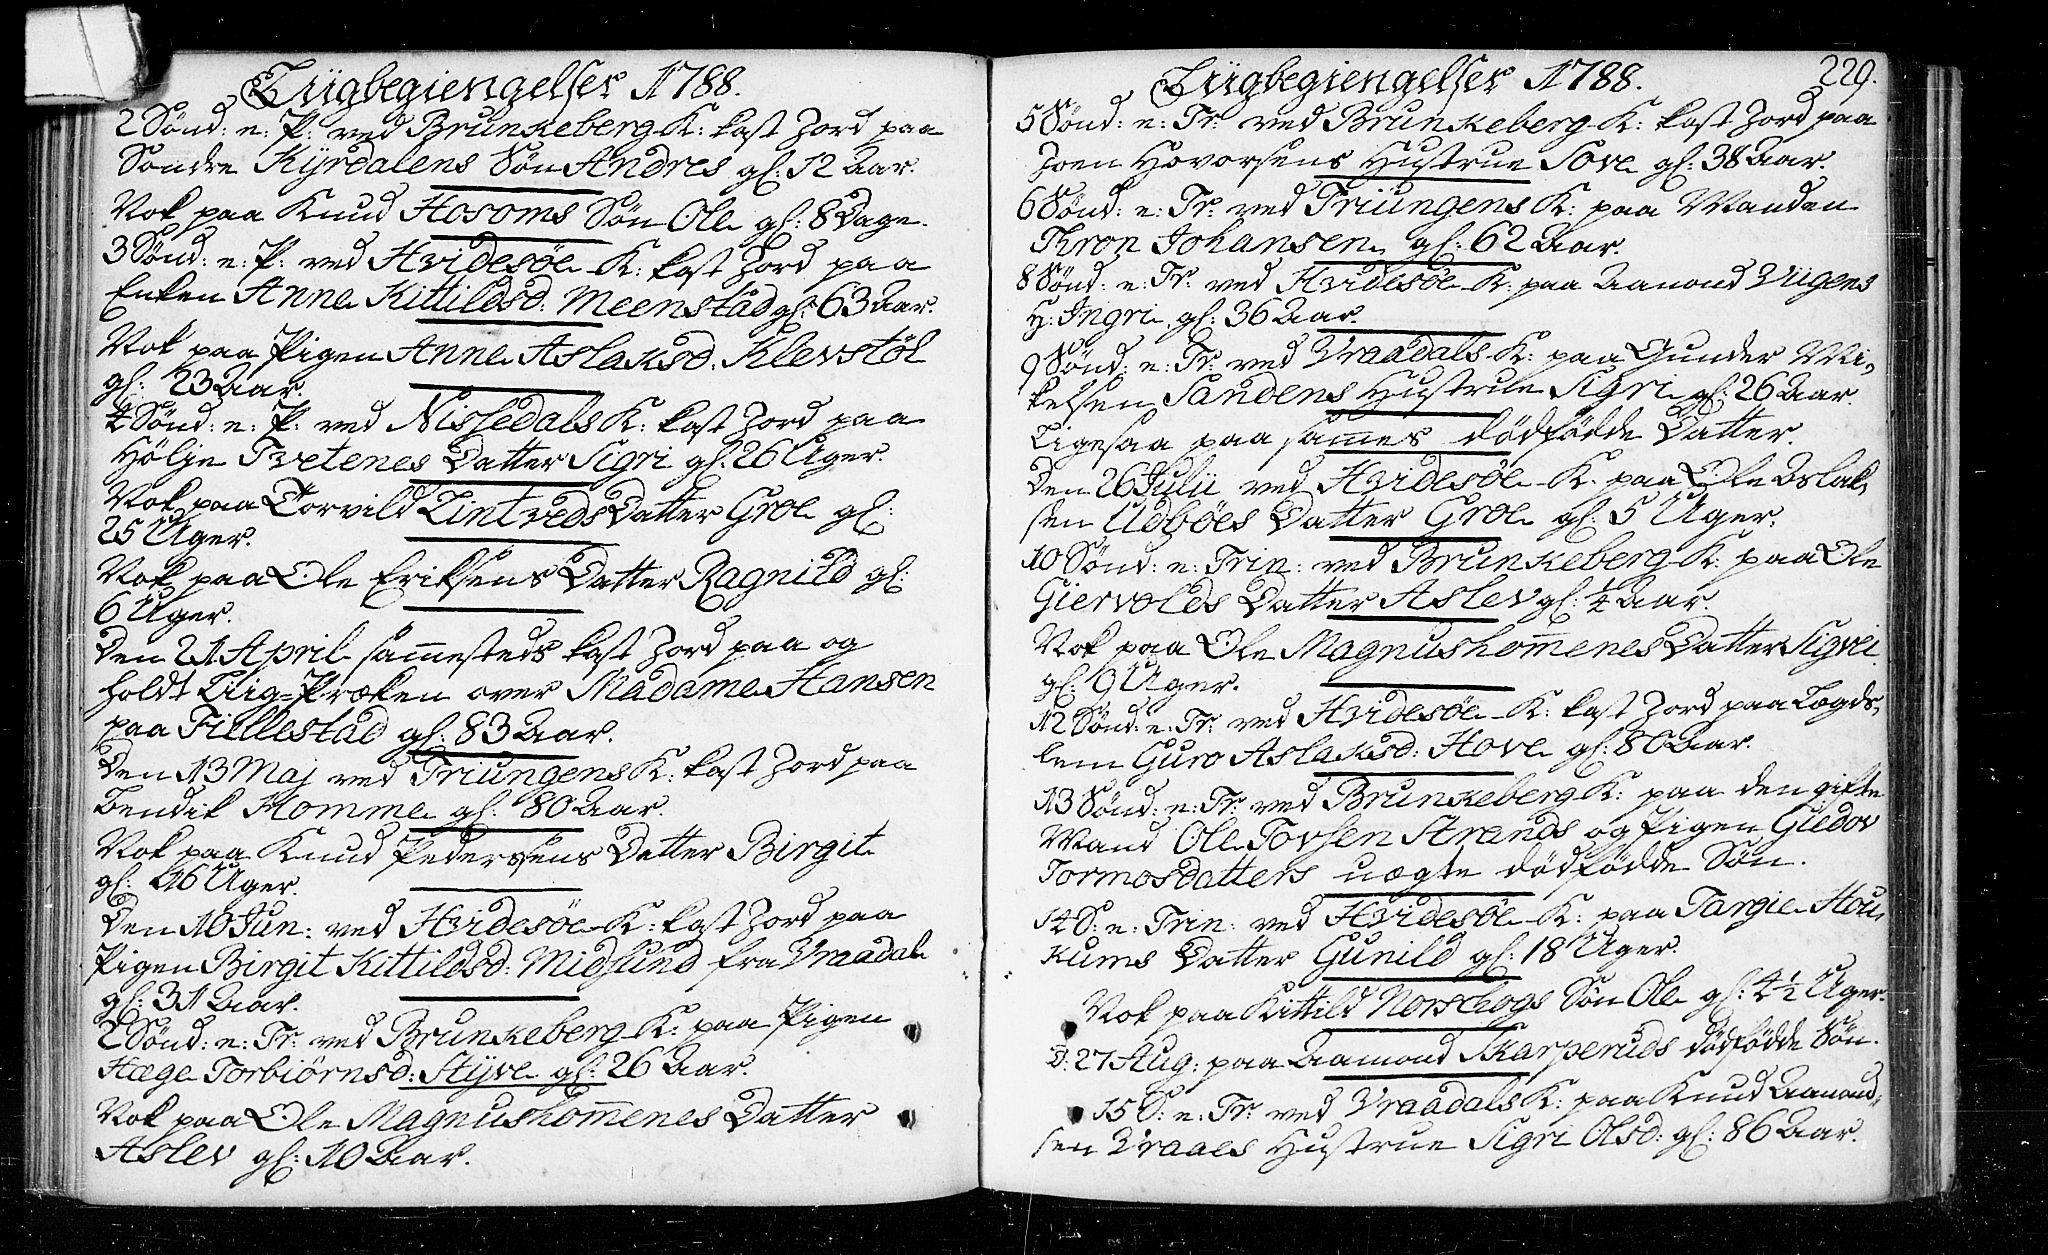 Liigbegiengelser 1788.
2 Sønd: e: P: ved Brunkeberg K: kast Jord paa
Søndre Kyrdalens Søn Andres gl: 12 Aar.
Nok paa Knud Hosoms Søn Ole gl: 8 Dage.
3 Sønd: e: P: ved Hvidesøe K: kast Jord paa
Enken Anne Kittildsd: Meenstad gl: 63 Aar.
Nok paa Pigen Anne Aslaksd: Klevstøl
gl: 23 Aar.
4 Sønd: e: P: ved Nissedals K: kast Jord paa
Hølje Tvetenes Datter Sigri gl: 26 Uger.
Nok paa Torvild Lintveds Datter Groe gl:
25 Uger.
Nok paa Ole Eriksens Datter Ragnild gl:
6 Uger.
Den 21 April sam̅esteds kast Jord paa og
holdt Liig-Præken over Madame Hansen
paa Fiellestad gl: 83 Aar.
Den 13 Maj ved Triungens K: kast Jord paa
Bendik Homme gl: 80 Aar.
Nok paa Knud Pederssens Datter Birgit
gl: 16 Uger.
Den 10 Jun: ved Hvidesøe K: kast Jord paa
Pigen Birgit Kittildsd: Midsund fra Vraadal
gl: 31 Aar.
2 Sønd: e: Tr: ved Brunkeberg K: paa Pigen
Hæge Torbiørnsd: Styve gl: 26 Aar.
Nok paa Ole Magnushom̅enes Datter
Aslev gl: 10 Aar.
Liigbegiengelser 1788. 229.
5 Sønd: e: Tr: ved Brunkeberg K: kast Jord paa
Joen Hovorsens Hustrue Tove gl: 38 Aar.
6 Sønd: e: Tr: ved Triungens K: paa Manden
Thron Johansen gl: 62 Aar.
8 Sønd: e: Tr: ved Hvidesøe K: paa Aamond Vigens
H: Ingri gl: 36 Aar.
9 Sønd: e: Tr: ved Vraadals K: paa Gunder Mi,
kelsen Sandens Hustrue Sigri gl: 26 Aar.
Ligesaa paa sam̅es dødfødde Datter.
Den 26 Julii ved Hvidesøe K. paa Ole Aslak,
sen Udbøes Datter Groe gl: 5 Uger.
10 Sønd: e: Trin: ved Brunkeberg K: paa Ole
Giervolds Datter Aslev gl: ¼ Aar.
Nok paa Ole Magnushom̅enes Datter Sigvei
gl: 9 Uger.
12 Sønd: e: Tr: ved Hvidesøe K: kast Jord paa Lægds,
lem Guro Aslaksd: Hove gl: 80 Aar.
13 Sønd: e: Tr: ved Brunkeberg K: paa den gifte
Mand Ole Tovsen Strands og Pigen Giedov
Tormosdatters uægte dødfødde Søn.
14 S: e: Trin: ved Hvidesøe K: paa Targie Hou,
kums Datter Gunild gl: 18 Uger.
Nok paa Kittild Norskogs Søn Ole gl: 4½ Uger.
D: 27 Aug: paa Aamond Skarperuds dødfødde Søn.
15 S: e: Tr: ved Vraadals K: paa Knud Aamond,
sen Vraaes Hustrue Sigri Olsd: gl: 86 Aar.